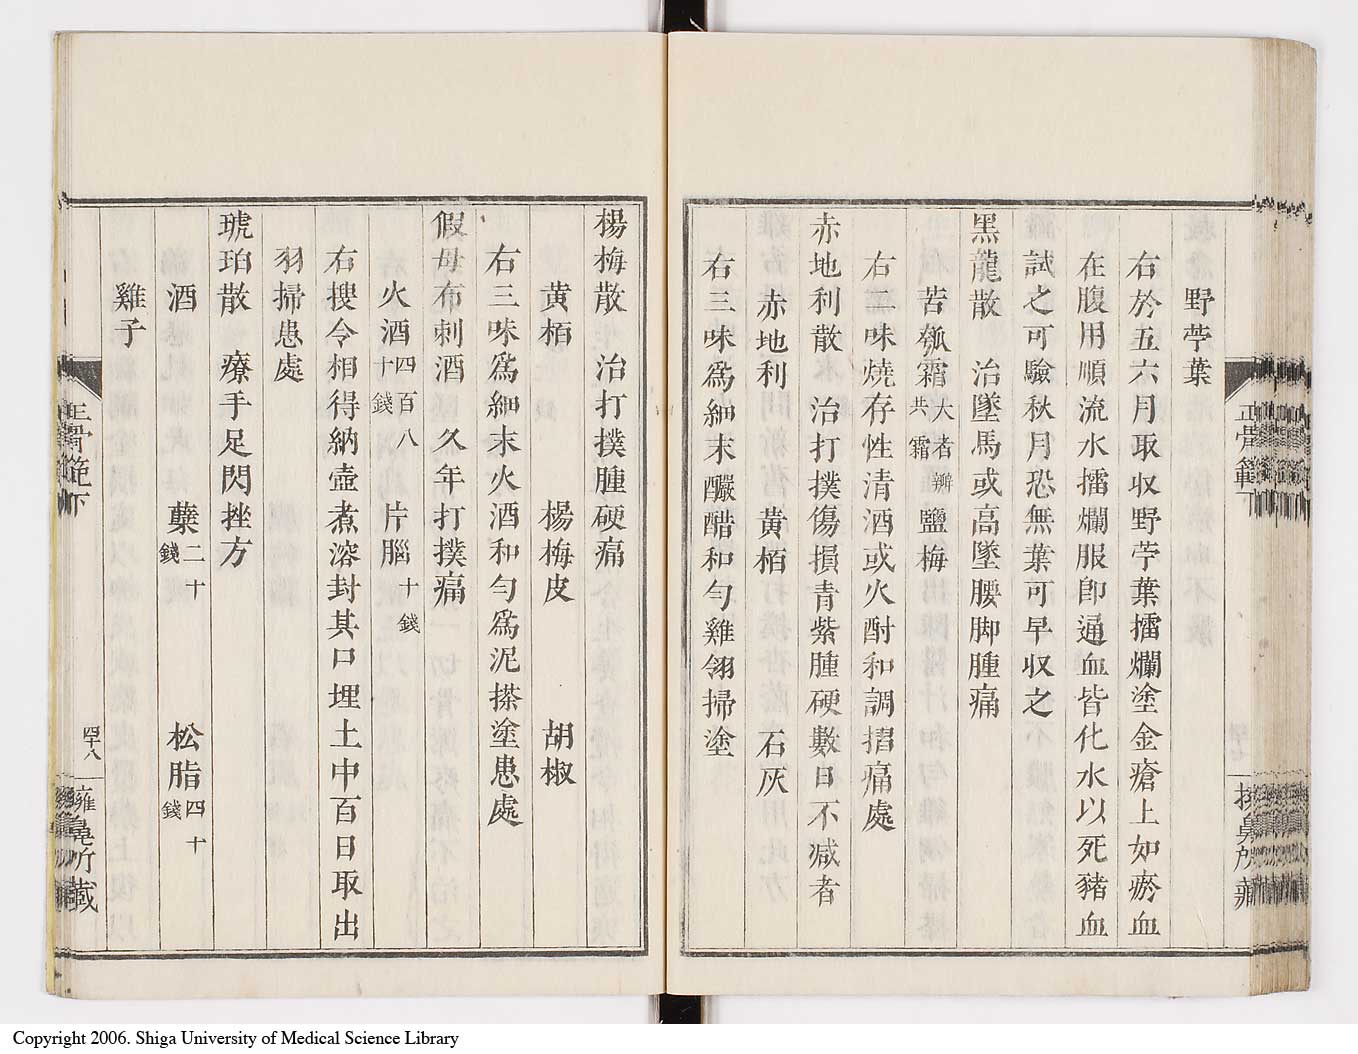 野苧葉
右於五六月取収野苧葉擂爛塗金瘡上如瘀血
在腹用順流水擂爛服卽通血皆化水以死豬血
試之可驗秋月恐無葉可早収之
黑龍散 治墜馬或高墜腰脚腫痛
苦瓠霜大者辨共霜 鹽梅
右二味燒存性清酒或火酎和調搨痛處
赤地利散 治打撲傷損青紫腫硬數日不減者
赤地利 黄栢 石灰
右三味爲細末釅醋和勻雞翎掃塗
楊梅散 治打撲腫硬痛
黄栢 楊梅皮 胡椒
右三味爲細末火酒和勻爲泥搽塗患處
假母布刺酒 久年打撲痛
火酒四百八十錢 片腦十錢
右搜令相得納壺煮溶封其口埋土中百日取出
羽掃患處
琥珀散 療手足閃挫方
酒 蘖二十錢 松脂四十錢
雞子
正骨範下
四十八
Copyright 2006. Shiga University of Medical Science Library